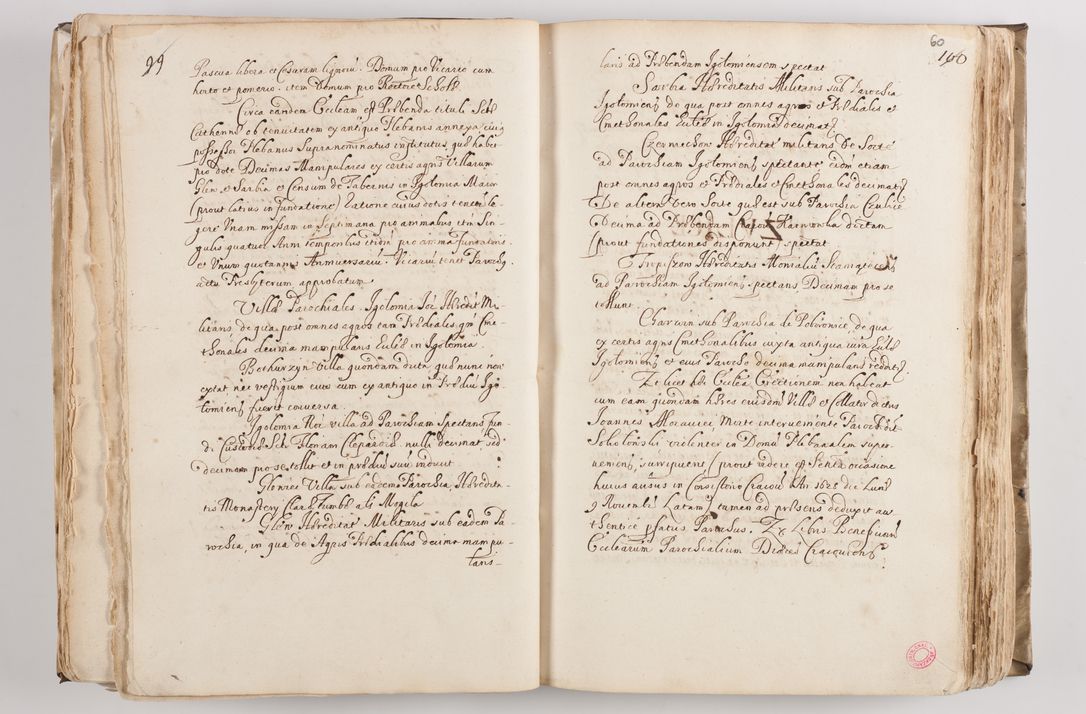 99
Pascua libera et Cesuram lignorū. Domum pro Vicario cum
horto et pomerio. item Domum pro Rectore Scholæ.
Circa eandem Eccleām est Præbenda tituli Sctæ
Catherinæ ob tenuitatem ex antiquo Plebaniæ annexa, cuius
possessor Plebanus Supranominatus institutus, quæ habet
pro dote Decimas Manipulares ex certis agris Villarum
Glew et Sarbia et Censum de Tabernis in Igolomia Maior
(prout latius in fundatione) ratione cuius dotis tenetur le-
gere Unam missam in Septimana pro animabus etm Sin-
gulis quatuor Anni temporibus itidem pro anima fundatoris
et Unum quotannis Anniversariū. Vicariū tenet Parochus
actu Presbyterum approbatum
Villæ Parochiales. Igolomia Hæredit Mi-
litaris de qua post omnes agros tam Prædiales qm Cme-
thonales decima manipularis Eccliæ in Igolomia.
Bothurzyn Villa quondam dicta quæ nunc non
extat nec vestigium eius cum ex antiquo in Prædiū Igo-
lomiens fuerit conversa.
Igolomia Rōi villa ad Parochiam Spectans, fun-
di Custodiæ Scti Floriani Clepardiæ nulli decimat sed
decimam pro se tollit et in prædiū suū induxit
Glowiec Villa sub eadem Parochia, Hæredita-
tis Monastery Claræ Tumbæ als Mogila
Glew Hæreditat Militaris sub eadem Pa-
rochia, in qua de Agris Prædialibus decima manipu-
laris
60
100
laris ad Præbendam Igolomiensem spectat
Sarbia Hæreditatis Militaris sub Parochia
Igolomiens de qua post omnes agros et Prædiales et
Cmethonales Eccliæ in Igolomia decimat
Czernichow Hæreditat militaris De Sorte
ad Parochiam Igolomiens spectante eidem etiam
post omnes agros et Prædiales et Cmethonales decimat
De altera vero Sorte quæ est sub Parochia Czulice
Decima ad Præbendam Cracou Karniowska dictam
(prout fundationes disponunt) spectat
Tropiszow Hæreditatis Monialiū
ad Parochiam Igolomiens spectans Decimam pro se
tollunt.
Charwin sub Parochia de Poborowice, de qua
ex certis agris Cmethonalibus iuxta antiqua iura Eccliæ
Igolomiens et eius Parocho decima manipularis reddit
Et licet hæc Ecclia Erectionem non habeat
cum eam quondam hæres eiusdem Villæ et Collator dictus
Ioannis Morawiei Morte interveniente Parochi
Sokolowski violenter in Domū Plebanalem super-
veniens surripuerit (prout videre est Sentā occasione
huius ausus in Consistorio Cracou An 1628 die Lunæ
9 Novembr Latam) tamen ad præsens deduxit au-
thentice pfatus Parochus. Ex Libris Beneficiorū
Eccliarum Parochialium Dioeces Cracoviens